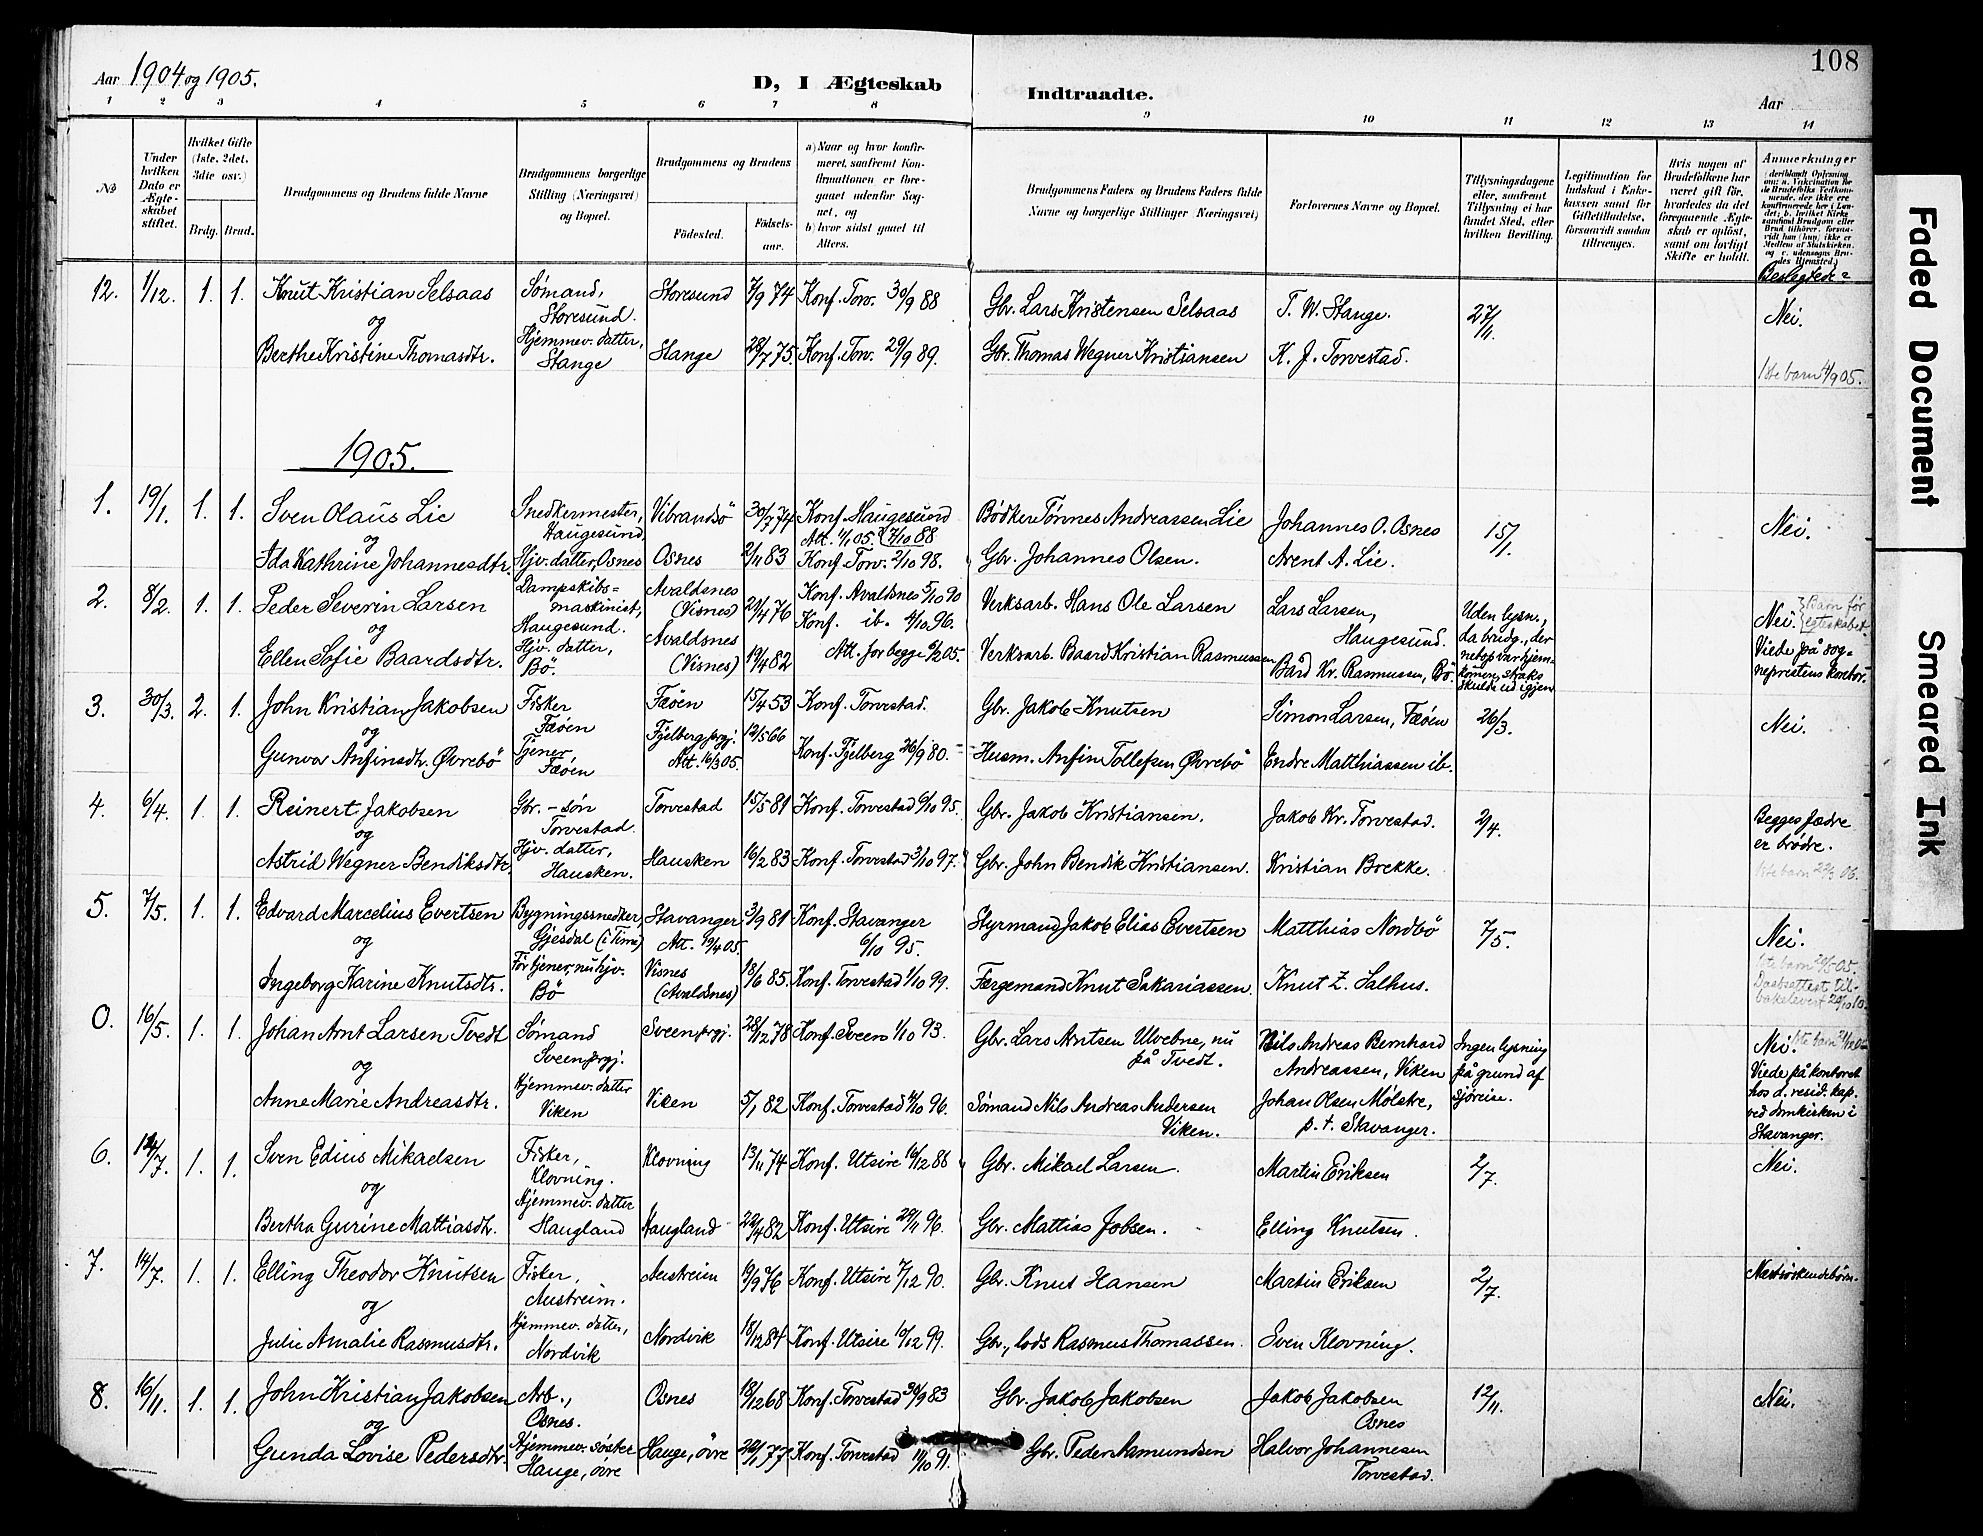 108
Aar 1904 og 1905.
D, I Ægteskab Indtraadte.
Aar
1 2 3 4 5 6 7 8 9 10 11 12 13 14
No
Under hvilken Dato er Ægteskabet stiftet.
Hvilket Gifte (1ste, 2det, 3die osv.)
Brdg. Brud.
Brudgommens og Brudens fulde Navne
Brudgommens borgerlige Stilling (Næringsvei) og Bopæl.
Brudgommens og Brudens
Födested.
Födselsaar.
a) Naar og hvor konfirmeret, saafremt Konfirmationen er foregaaet udenfor Sognet, og
b) hvor sidst gaaet til Alters.
Brudgommens Faders og Brudens Faders fulde Navne og borgerlige Stillinger (Næringsvei)
Forlovernes Navne og Bopæl.
Tillysningsdagene eller, saafremt Tillysning ei har fundet Sted, efter hvilken Bevilling.
Legitimation for Indskud i Enkekassen samt for Giftetilladelse, forsaavidt saadan tiltrænges.
Hvis nogen af Brudefolkene har været gift för, hvorledes da det foregaaende Ægteskab er oplöst, samt om lovligt Skifte er holdt.
Anmærkninger
(deriblandt Oplysning om: a. Vakcination for de Brudefolks Vedkommende, der ikke ere konfirmerede her i Landet; b. hvilket Kirkesamfund Brudgom eller Brud tilhörer, forsaavidt han (hun) ikke er Medlem af Statskirken, og c. udensogns Brudes Hjemsted.)
Beslegtede?
12. 1/12. 1. 1. Knut Kristian Selsaas
Sømand, Storesund. Storesund 7/9 74 Konf. Torv. 30/9 88
Gbr. Lars Kristensen Selsaas T. W. Stange. 27/11. Nei.
og
Berthe Kristine Thomasdtr.
Hjemmev. datter, Stange Stange 28/7 75. Konf. Torv. 29/9 89.
Gbr. Thomas Wegner Kristiansen K. J. Torvestad.
1ste barn 4/9 05.
1905.
1. 19/1. 1. 1. Sven Olaus Lie
Snedkermester, Haugesund, Vibrandsö 30/7 74 Konf. Haugesund
Att. 1/1 05. 7/10 88
Bödker Tönnes Andreassen Lie Johannes O. Osnes 15/1. Nei.
og
Ida Kathrine Johannesdtr.
Hjv. datter, Osnes Osnes 2/11 83 Konf. Torv. 2/10 98.
Gbr. Johannes Olsen. Arent A. Lie.
2. 8/2. 1. 1. Peder Severin Larsen
Dampskibsmaskinist, Haugesund. Avaldsnes (Visnes) 24/4 76 Konf. Avaldsnes 5/10 90
Verksarb. Hans Ole Larsen Lars Larsen, Haugesund.
Uden lysn., da brudg., der netop var hjemkommen, straks skulde ud igjen
Nei. Barn för egteskabet.
Viede på sogneprestens kontor.
og
Ellen Sofie Baardsdtr.
Hjv. datter, Bö. Avaldsnes (Visnes) 19/4 82 Konf. ib. 4/10 96.
Att. for begge 6/2 05.
Verksarb. Baard Kristian Rasmussen Bård Kr. Rasmussen, Bö.
3. 30/3. 2. 1. John Kristian Jakobsen
Fisker Fæøen Fæöen 15/4 53 Konf. Torvestad.
Gbr. Jakob Knutsen Simon Larsen, Fæöen 26/3. Nei.
og
Gunvor Anfinsdtr. Øvrebö
Tjener, Fæöen Fjelberg prgj. Att. 16/3 05. 12/5 66 Konf. Fjelberg 26/9 80.
Husm. Anfin Tollefsen Øvrebö Endre Matthiassen ib.
4. 6/4. 1. 1. Reinert Jakobsen
Gbr.-sön Torvestad. Torvestad 15/5 81 Konf. Torvestad 6/10 95.
Gbr. Jakob Kristiansen. Jakob Kr. Torvestad. 2/4.
Begges fædre er brödre.
1ste barn 22/3 06.
og
Astrid Wegner Bendiksdtr.
Hjv. datter, Hausken. Hausken 16/2 83 Konf. Torvestad 3/10 97.
Gbr. John Bendik Kristiansen. Kristian Brekke.
5. 7/5. 1. 1. Edvard Marcelius Evertsen
Bygningssnedker, Gjesdal (i Time) Stavanger Att. 19/4 05. 3/9 81 Konf. Stavanger 6/10 95.
Styrmand Jakob Elias Evertsen Matthias Nordbö 7/5. Nei.
og
Ingeborg Karine Knutsdtr.
För tjener, nu hjv. Bö Visnes (Avaldsnes) 18/6 85. Konf. Torvestad 1/10 99.
Færgemand Knut Sakariassen. Knut Z. Salhus.
Daabsattest tilbakelevert
0. 16/5. 1. 1. Johan Arnt Larsen Tvedt
Sømand Sveen prgj. Sveen prgj. 28/12 78 Konf. Sveen 1/10 93.
Gbr. Lars Arntsen Ulvebne, nu på Tvedt. Nils Andreas Bernhard Andreassen, Viken
Ingen lysning på grund af sjöreise.
Nei.
Viede på kontoret hos d. resid. kap. ved domkirken i Stavanger.
og
Anne Marie Andreasdtr.
Hjemmev. datter Viken Viken 5/1 82 Konf. Torvestad 4/10 96.
Sömand Nils Andreas Andersen Viken. Johan Olsen Mølstre, p. t. Stavanger.
6. 14/7. 1. 1. Sven Edius Mikaelsen
Fisker, Klovning. Klovning 13/11 74 Konf. Utsire 16/12 88
Gbr. Mikael Larsen. Martin Eriksen 2/7. Nei.
og
Bertha Gurine Mattiasdtr.
Hjemmev. datter Haugland Haugland 22/4 82 Konf. Utsire 29/11 96.
Gbr. Mattias Jobsen. Elling Knutsen.
7. 14/7. 1. 1. Elling Theodor Knutsen
Fisker, Austreim. Austreim 19/9 76 Konf. Utsire 7/12 90.
Gbr. Knut Hansen Martin Eriksen 2/7. Næstsöskendebörn.
og
Julie Amalie Rasmusdtr.
Hjemmev. datter, Nordvik Nordvik 18/12 84 Konf. Utsire 10/12 99.
Gbr., lods Rasmus Thomassen. Sven Klovning.
8. 16/11. 1. 1. John Kristian Jakobsen
Arb., Osnes. Osnes 18/12 68 Konf. Torvestad 30/9 83
Gbr. Jakob Jakobsen Jakob Jakobsen Osnes 12/11. Nei.
og
Gunda Lovise Pedersdtr.
Hjemmev. söster Hauge, övre Hauge, övre 22/1 77 Konf. Torvestad 11/10 91.
Gbr. Peder Asmundsen Halvor Johannesen Torvestad.
Faded Document
Smeared Ink